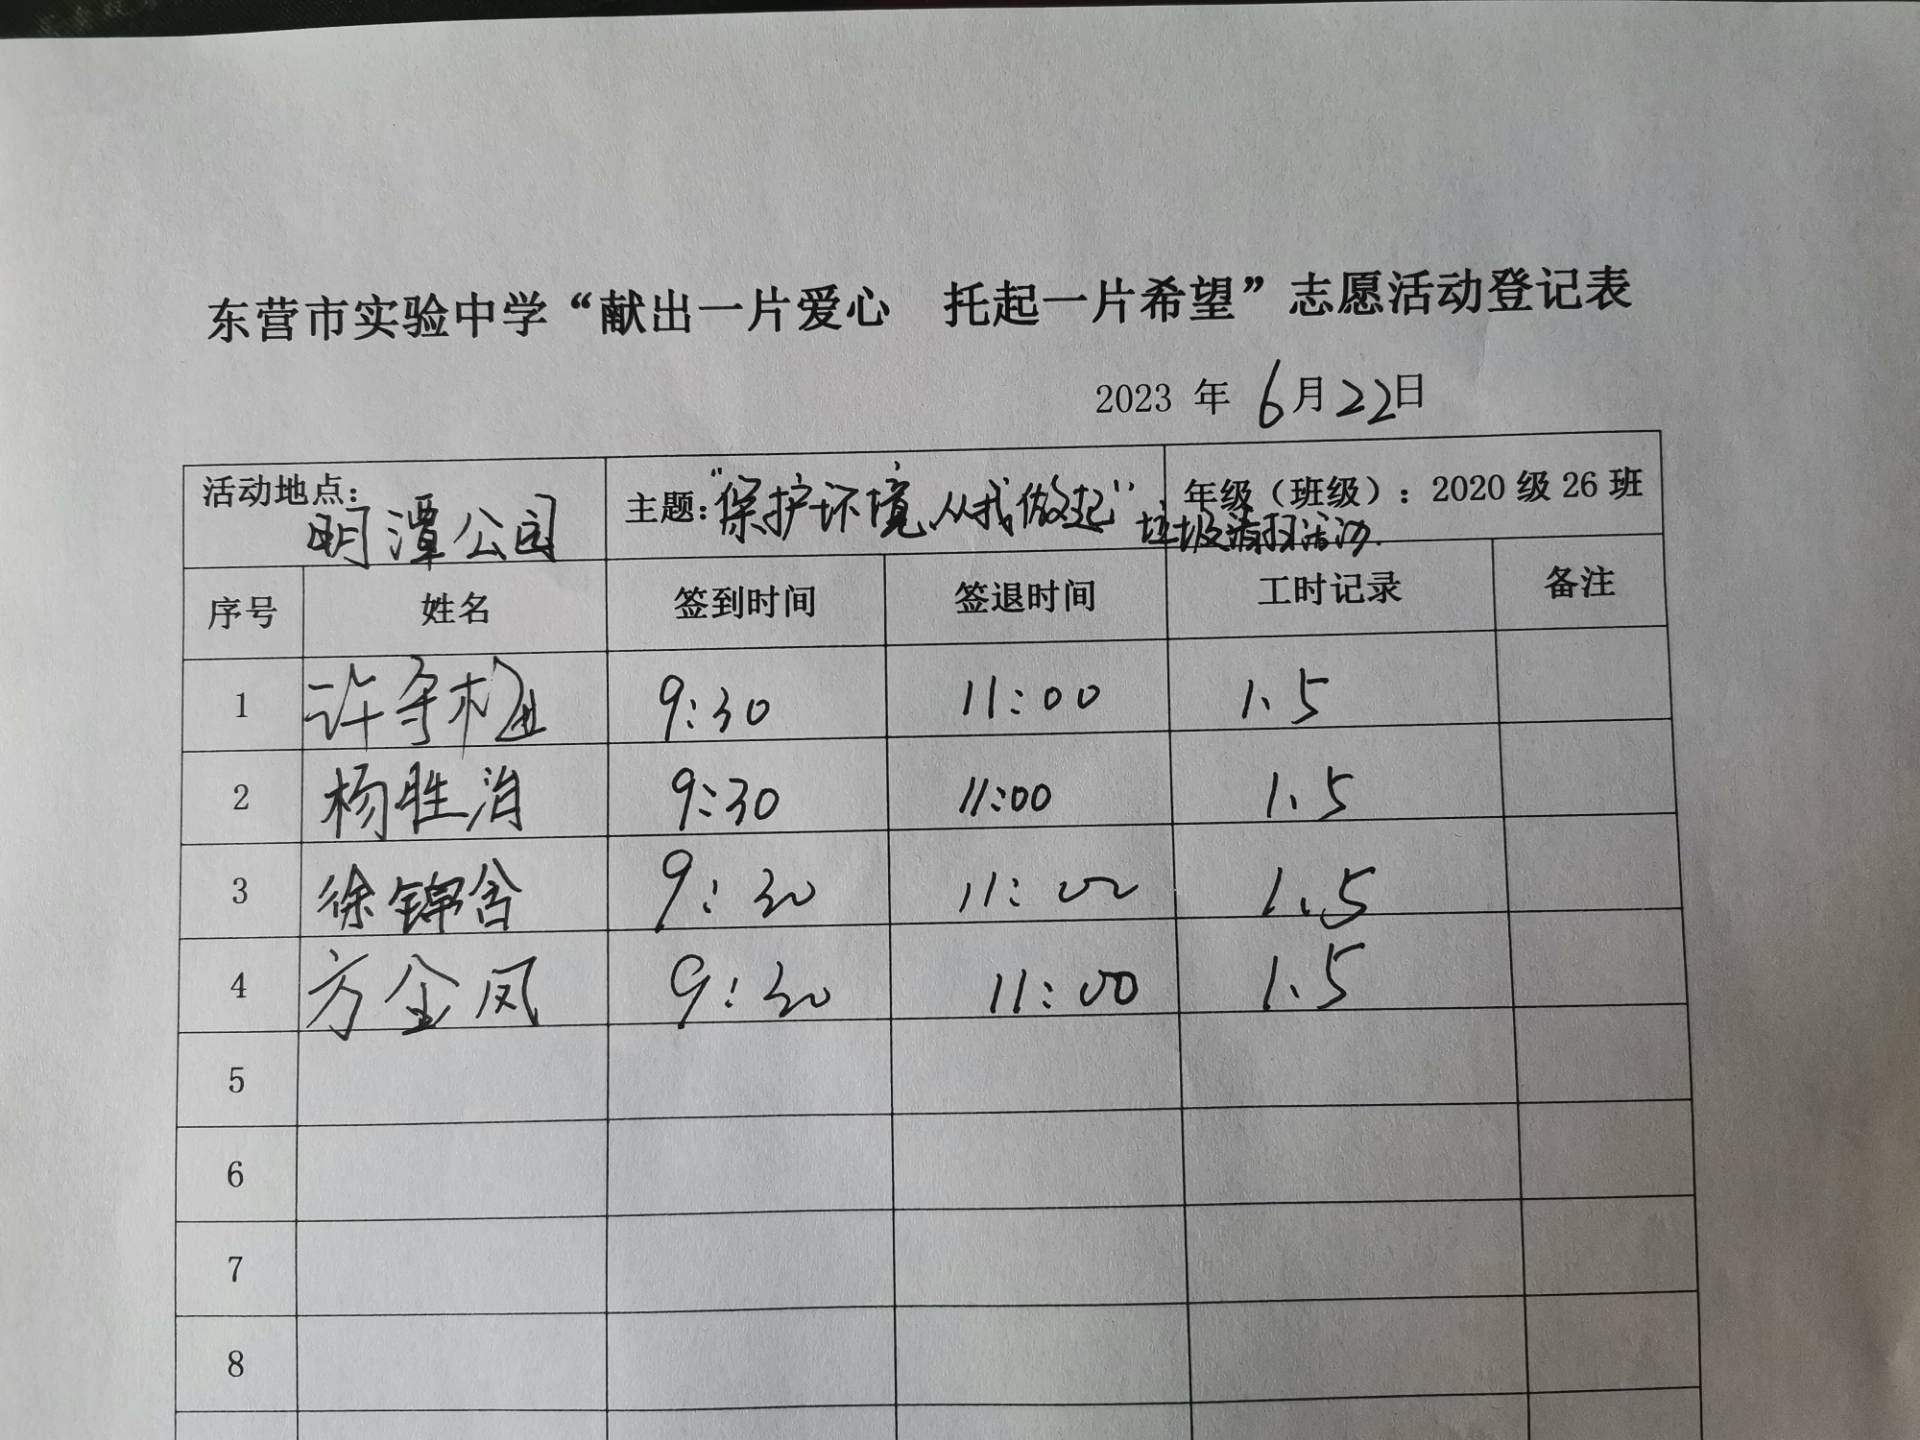 东营市实验中学“献出一片爱心 托起一片希望”志愿活动登记表
2023 年 6月22日
活动地点：明潭公园 主题：“保护环境从我做起”垃圾清扫活动. 年级（班级）：2020 级 26 班
序号 姓名 签到时间 签退时间 工时记录 备注
1 许 9:30 11:00 1.5
2 杨胜治 9:30 11:00 1.5
3 徐锦含 9:30 11:00 1.5
4 方金凤 9:30 11:00 1.5
5
6
7
8